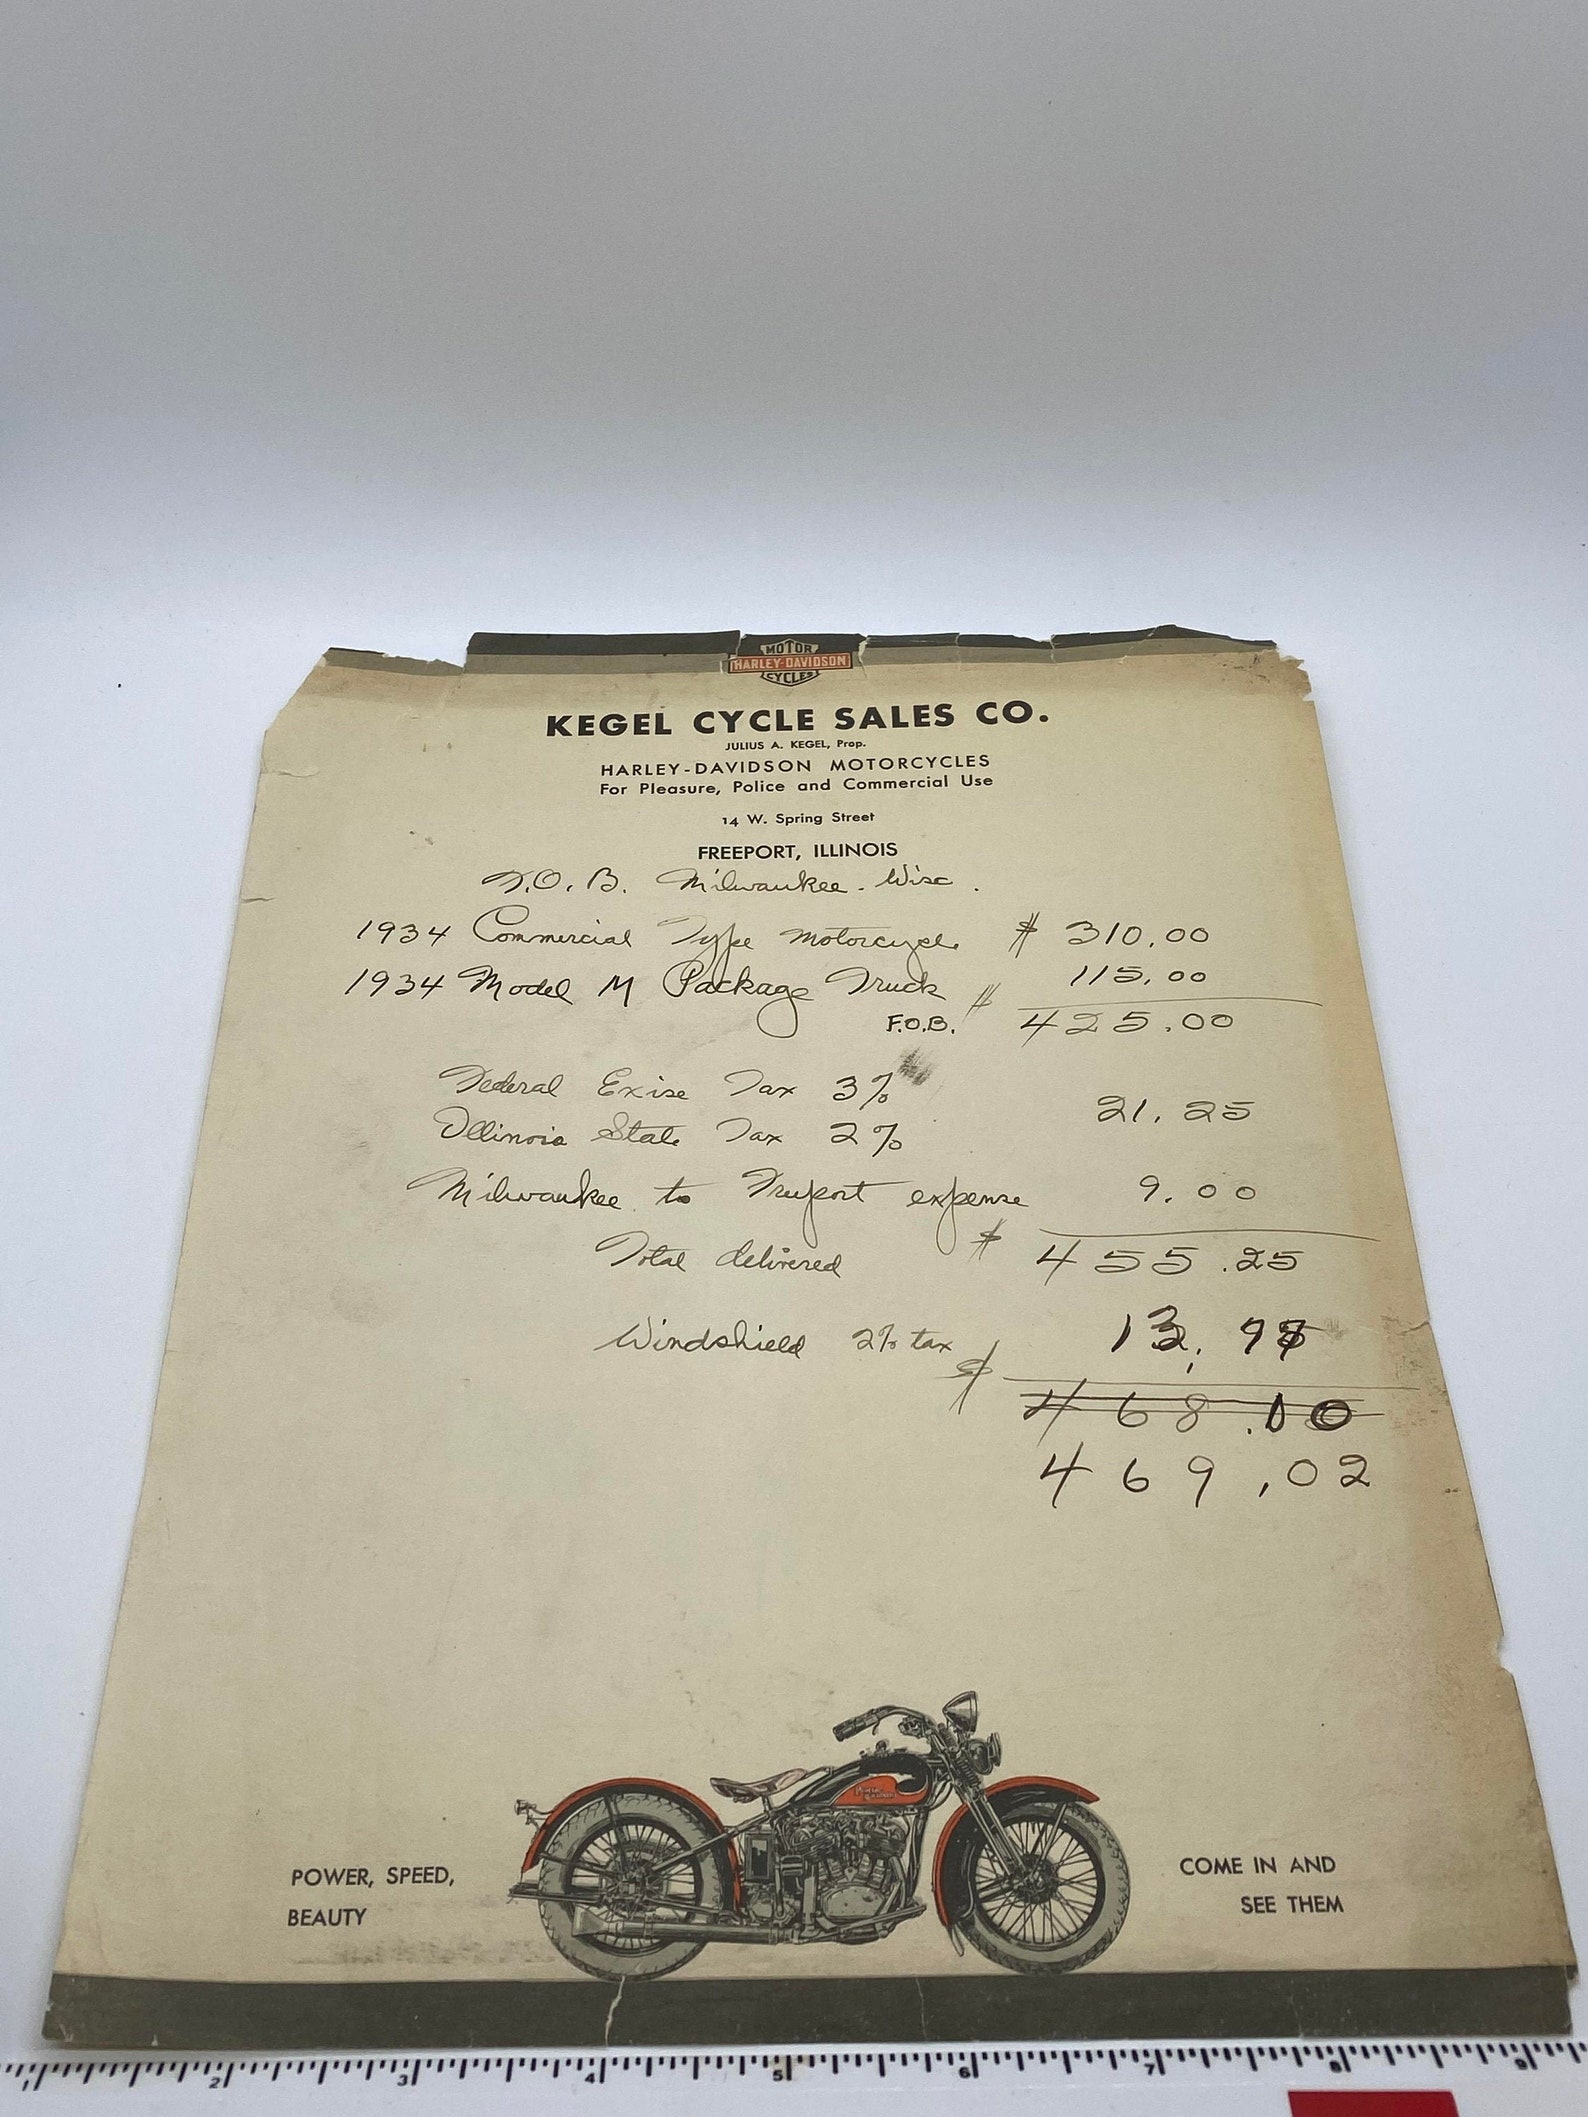 MOTOR
HARLEY-DAVIDSON
CYCLES
KEGEL CYCLE SALES CO.
JULIUS A. KEGEL, Prop.
HARLEY-DAVIDSON MOTORCYCLES
For Pleasure, Police and Commercial Use
14 W. Spring Street
FREEPORT, ILLINOIS
F.O.B. Milwaukee. Wisc.
1934 Commercial Type Motorcycle $ 310.00
1934 Model M Package Truck 115.00
F.O.B. $ 425.00
Federal Exise Tax 3%
21.25
Illinois State Tax 2%
Milwaukee to Freeport expense 9.00
Total delivered $ 455.25
Windshield 2% tax 13.
$ 468.10
469.02
POWER, SPEED,
BEAUTY
HARLEY-DAVIDSON
COME IN AND
SEE THEM
1 2 3 4 5 6 7 8 9